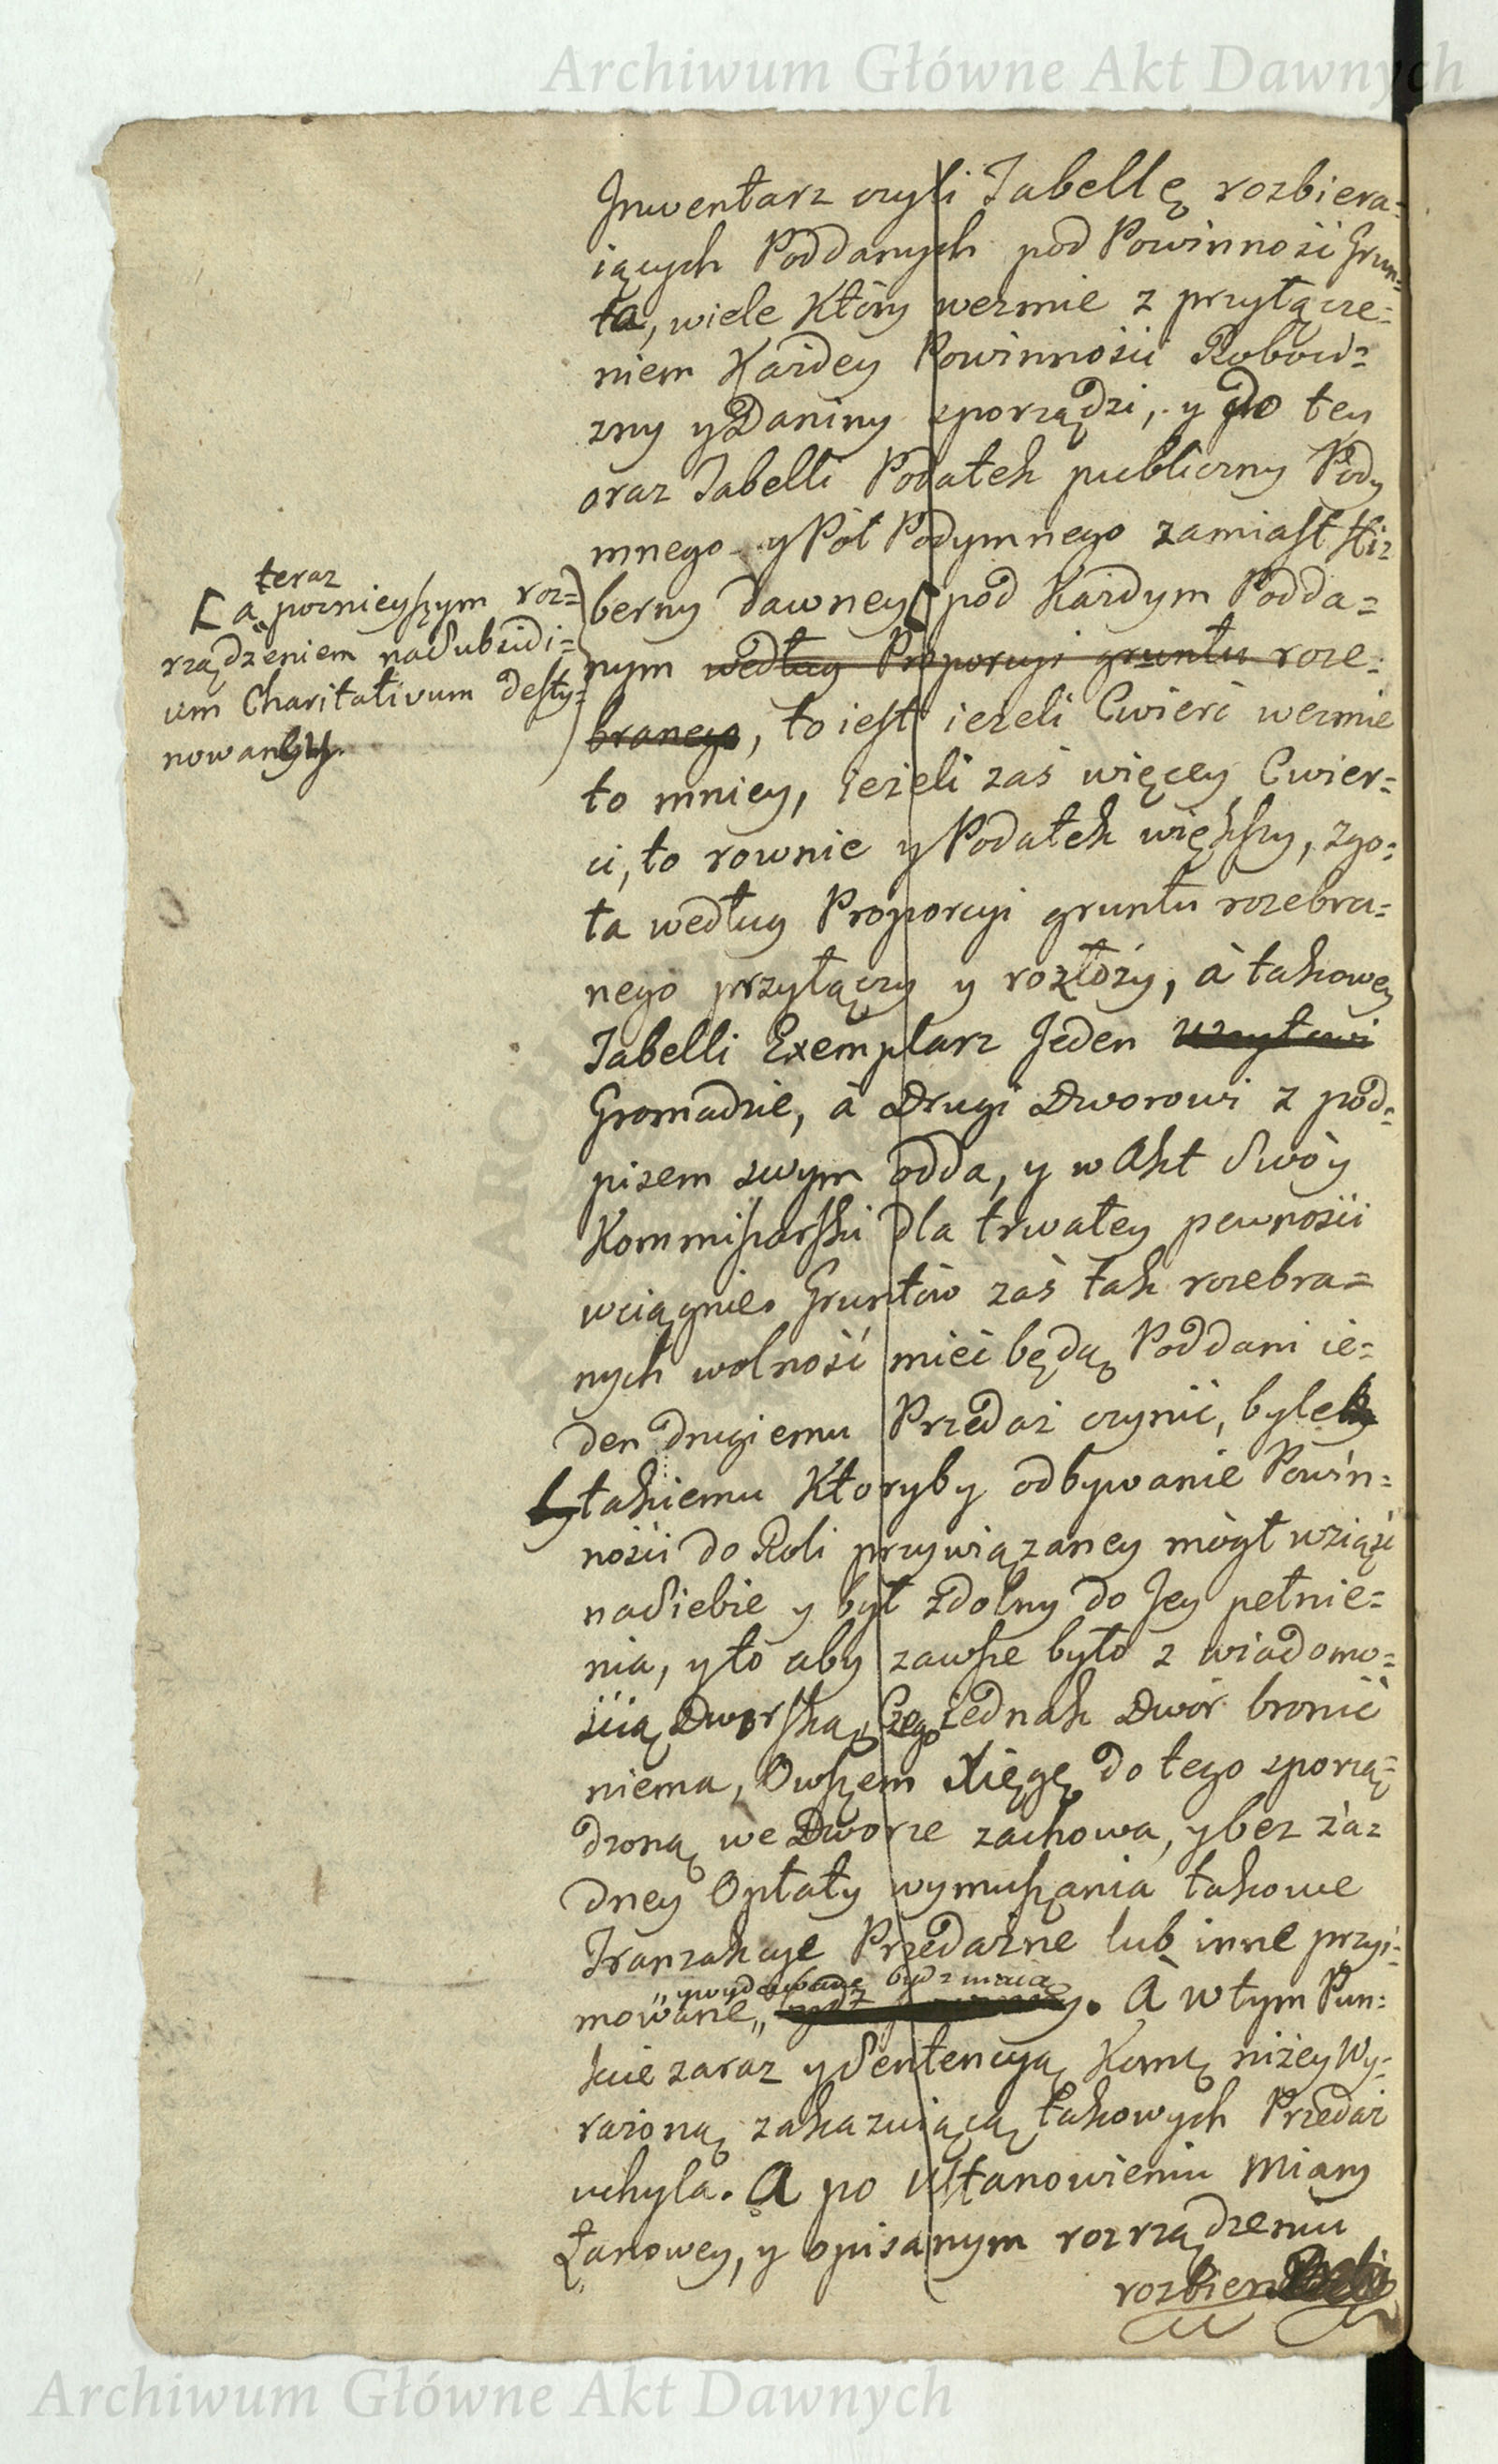 Archiwum Główne Akt Dawnych
Jnwentarz czyli Tabellę rozbiera=
iących Poddanych pod Powinnosci Grun=
ta, wiele Ktòry wezmie z przyłącze=
niem Każdey Powinnosci Robocɩ=
zny y Daniny sporządzi, y do tey
oraz Tabelli Podatek publiczny Pody
mnego y Pòł Podymnego zamiast Hi=
berny dawney [ pod Każdym Podda=
teraz
[ a poznieyszym roz=
rządzeniem na Subsidi=
um Charitativum desty=
nowaney.
nym według Proporcyi gruntu roze=
branego, to iest ieżeli Cwierć wezmie
to mniey, ieżeli zaś więcey Cwier=
ci, to rownie y Podatek większy, zgo=
ła według Proporcyi gruntu rozebra=
nego przyłączy y rozłoży, à takowey
Tabelli Exemplarz Jeden
Gromadzie, à Drugi Dworowi z pod=
pisem swym odda, y w Akt Swòy
Kommissarski dla trwałey pewnosci
wciągnie. Gruntòw zaś tak rozebra=
nych wolność mieć będą Poddani ie=
den drugiemu Przedaż czynić, byle
by takiemu Ktoryby odbywanie Powin=
nosci do Roli przywiązaney mògł wziąść
na Siebie y był zdolny do Jey pełnie=
nia, y to aby zawsze było z wiadomo=
ścią Dworską, Czego iednak Dwòr bronić
niema, Owszem Xięgę do tego sporzą=
dzoną we Dworze zachowa, y bez ża=
dney Opłaty wymuszania takowe
Tranzakcye Przedażne lub inne przyi=
y wydawane bydz maią
mowane. A w tym Pun=
kcie zaraz y Sentencyą Komą niżey Wy=
rażoną zakazuiącą takowych Przedaż
uchyla. A po Ustanowieniu Miary
Łanowey, y opisanym rozrządzeniu
Archiwum Główne Akt Dawnych